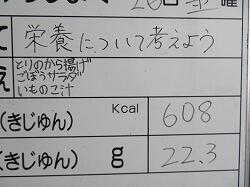 26日 金曜
て 栄養について考えよう
え とりのから揚げ
ごぼうサラダ
いものこ汁
(きじゅん) Kcal 608
(きじゅん) g 22.3